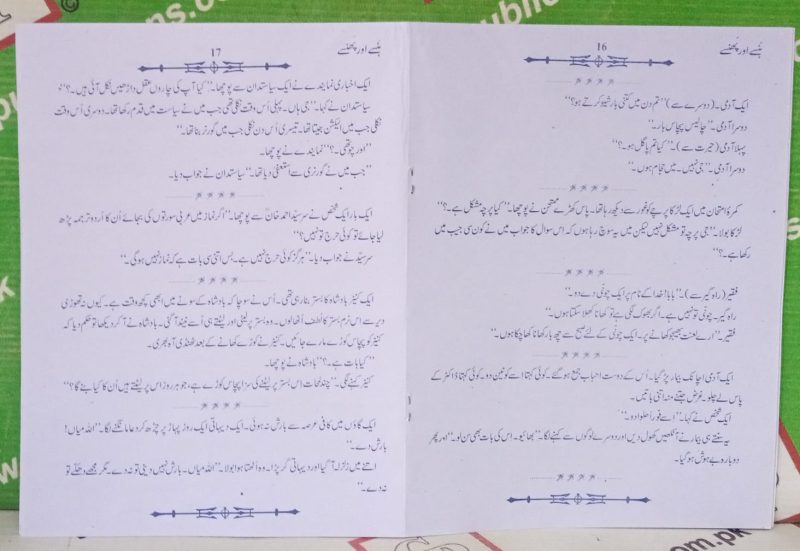 ہنسے اور پھنسے
16
ایک آدمی۔ (دوسرے سے) ”تم دن میں کتنی بار شیو کرتے ہو؟“
دوسرا آدمی۔ ”چالیس پچاس بار۔“
پہلا آدمی (حیرت سے)۔ ”کیا تم پاگل ہو۔؟“
دوسرا آدمی۔ ”جی نہیں۔ میں حجام ہوں۔“
کمرۂ امتحان میں ایک لڑکا پرچے کو غور سے دیکھ رہا تھا۔ پاس کھڑے ممتحن نے پوچھا۔ ”کیا پرچہ مشکل ہے۔؟“
لڑکا بولا۔ ”جی پرچہ تو مشکل نہیں لیکن میں یہ سوچ رہا ہوں کہ اس سوال کا جواب میں نے کون سی جیب میں
رکھا ہے۔؟“
فقیر (راہ گیر سے)۔ ”بابا! خدا کے نام پر ایک چونی دے دو۔“
راہ گیر۔ چونی تو نہیں ہے۔ اگر بھوک لگی ہے تو کھانا کھلا سکتا ہوں۔“
فقیر۔ ”ارے لعنت بھیجو کھانے پر۔ ایک چونی کے لئے صبح سے چھ بار کھانا کھا چکا ہوں۔“
ایک آدمی اچانک بیمار پڑ گیا۔ اُس کے دوست احباب جمع ہو گئے۔ کوئی کہتا اسے کونین دو۔ کوئی کہتا ڈاکٹر کے
پاس لے چلو۔ غرض جتنے منہ اتنی باتیں۔
ایک شخص نے کہا۔ ”اسے فوراً حلوا دو۔“
یہ سنتے ہی بیمار نے آنکھیں کھول دیں اور دوسرے لوگوں سے کہنے لگا۔ ”بھائیو۔ اس کی بات بھی سن لو۔“ اور پھر
دوبارہ بے ہوش ہو گیا۔
ہنسے اور پھنسے
17
ایک اخباری نمائندے نے ایک سیاستدان سے پوچھا۔ ”کیا آپ کی چاروں عقل داڑھیں نکل آئی ہیں۔؟“
سیاستدان نے کہا۔ ”جی ہاں۔ پہلی اُس وقت نکلی تھی جب میں نے سیاست میں قدم رکھا تھا۔ دوسری اُس وقت
نکلی جب میں الیکشن جیتا تھا۔ تیسری اُس دن نکلی جب میں گورنر بنا تھا۔“
”اور چوتھی۔؟“ نمائندے نے پوچھا۔
”جب میں نے گورنری سے استعفیٰ دیا تھا۔“ سیاستدان نے جواب دیا۔
ایک بار ایک شخص نے سر سید احمد خان سے پوچھا۔ ”اگر نماز میں عربی سورتوں کی بجائے اُن کا اُردو ترجمہ پڑھ
لیا جائے تو کوئی حرج تو نہیں؟“
سر سید نے جواب دیا۔ ”ہرگز کوئی حرج نہیں ہے۔ بس اتنی سی بات ہے کہ نماز نہیں ہوگی۔“
ایک کنیز بادشاہ کا بستر بنا رہی تھی۔ اُس نے سوچا کہ بادشاہ کے سونے میں ابھی کچھ وقت ہے۔ کیوں نہ تھوڑی
دیر سے اس نرم بستر کا لطف اُٹھا لوں۔ وہ بستر پر لیٹی اور لیٹتے ہی اُسے نیند آ گئی۔ بادشاہ نے آ کر دیکھا تو حکم دیا کہ
کنیز کو پچاس کوڑے مارے جائیں۔ کنیز نے کوڑے کھانے کے بعد ٹھنڈی آہ بھری۔
”کیا بات ہے۔؟“ بادشاہ نے پوچھا۔
کنیز کہنے لگی۔ ”چند لمحات اِس بستر پر لیٹنے کی سزا پچاس کوڑے ہے، جو ہر روز اس پر لیٹتے ہیں اُن کا کیا بنے گا؟“
ایک گاؤں میں کافی عرصہ سے بارش نہ ہوئی۔ ایک دیہاتی ایک روز پہاڑ پر چڑھ کر دعا مانگنے لگا۔ ”اللہ میاں!
بارش دے۔“
اتنے میں زلزلہ آ گیا اور دیہاتی گر پڑا۔ وہ اُٹھتا ہوا بولا۔ ”اللہ میاں۔ بارش نہیں دینی تو نہ دے۔ مگر مجھے دھکے تو
نہ دے۔“